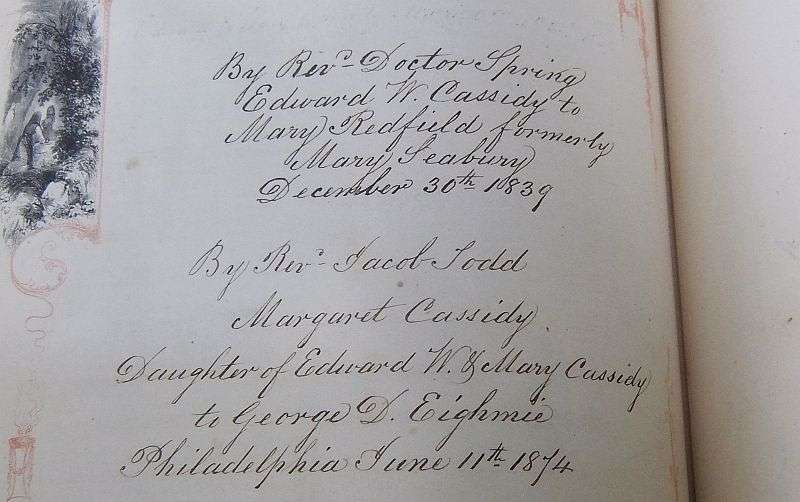 By Revd. Doctor Spring
Edward W. Cassidy to
Mary Redfield formerly
Mary Seabury
December 30th 1839
By Revd. Jacob Todd
Margaret Cassidy
Daughter of Edward W. & Mary Cassidy
to George D. Eighmie
Philadelphia June 11th 1874